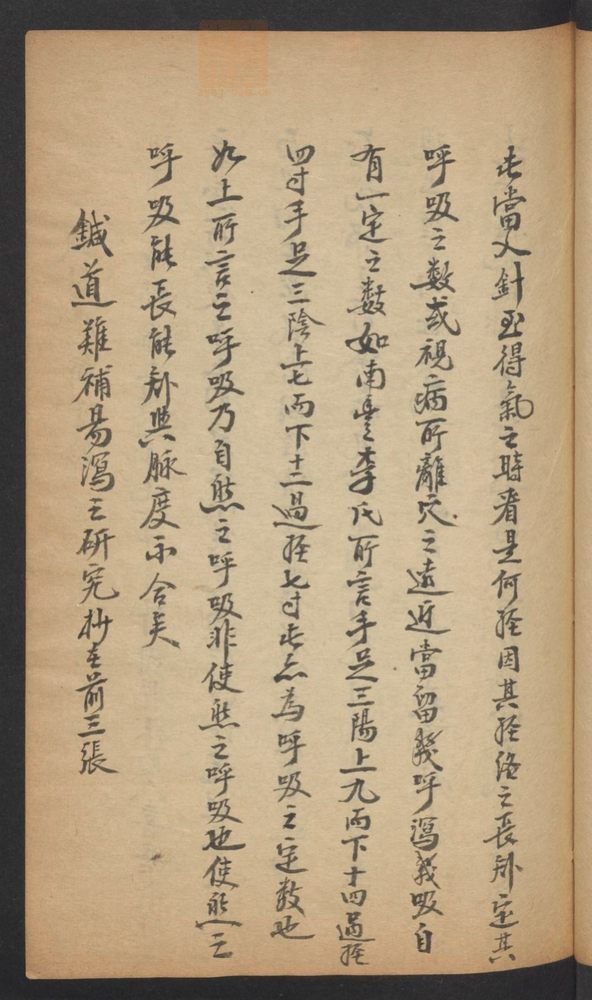 此當入針至得氣之時看是何経因其経絡之長知定其
呼吸之數或視病所離穴之遠近當留幾呼瀉幾吸自
有一定之數如南豊李氏所言手足三陽上九而下十四過経
四寸手足三陰上七而下十二過経七寸此亦為呼吸之定数也
如上所言之呼吸乃自然之呼吸非使然之呼吸也使然之
呼吸能長能短與脉度不合矣
鍼道難補易瀉之研究抄在前三張